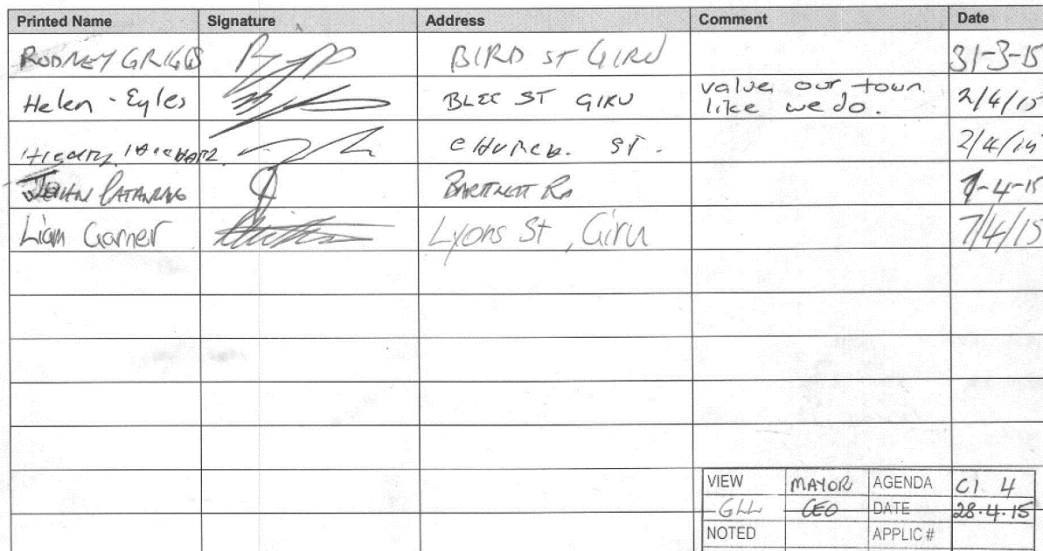 Printed Name Signature Address Comment Date
RODNEY GRIGGS BIRD ST GIRU 31-3-15
Helen - Eyles ST GIRU value our town like we do. 2/4/15
CHURCH. ST. 2/4/15
JOHN -4-15
Liam Garner Lyons St, Giru 7/4/15
VIEW MAYOR AGENDA C1 4
GLL CEO DATE 28.4.15
NOTED APPLIC #